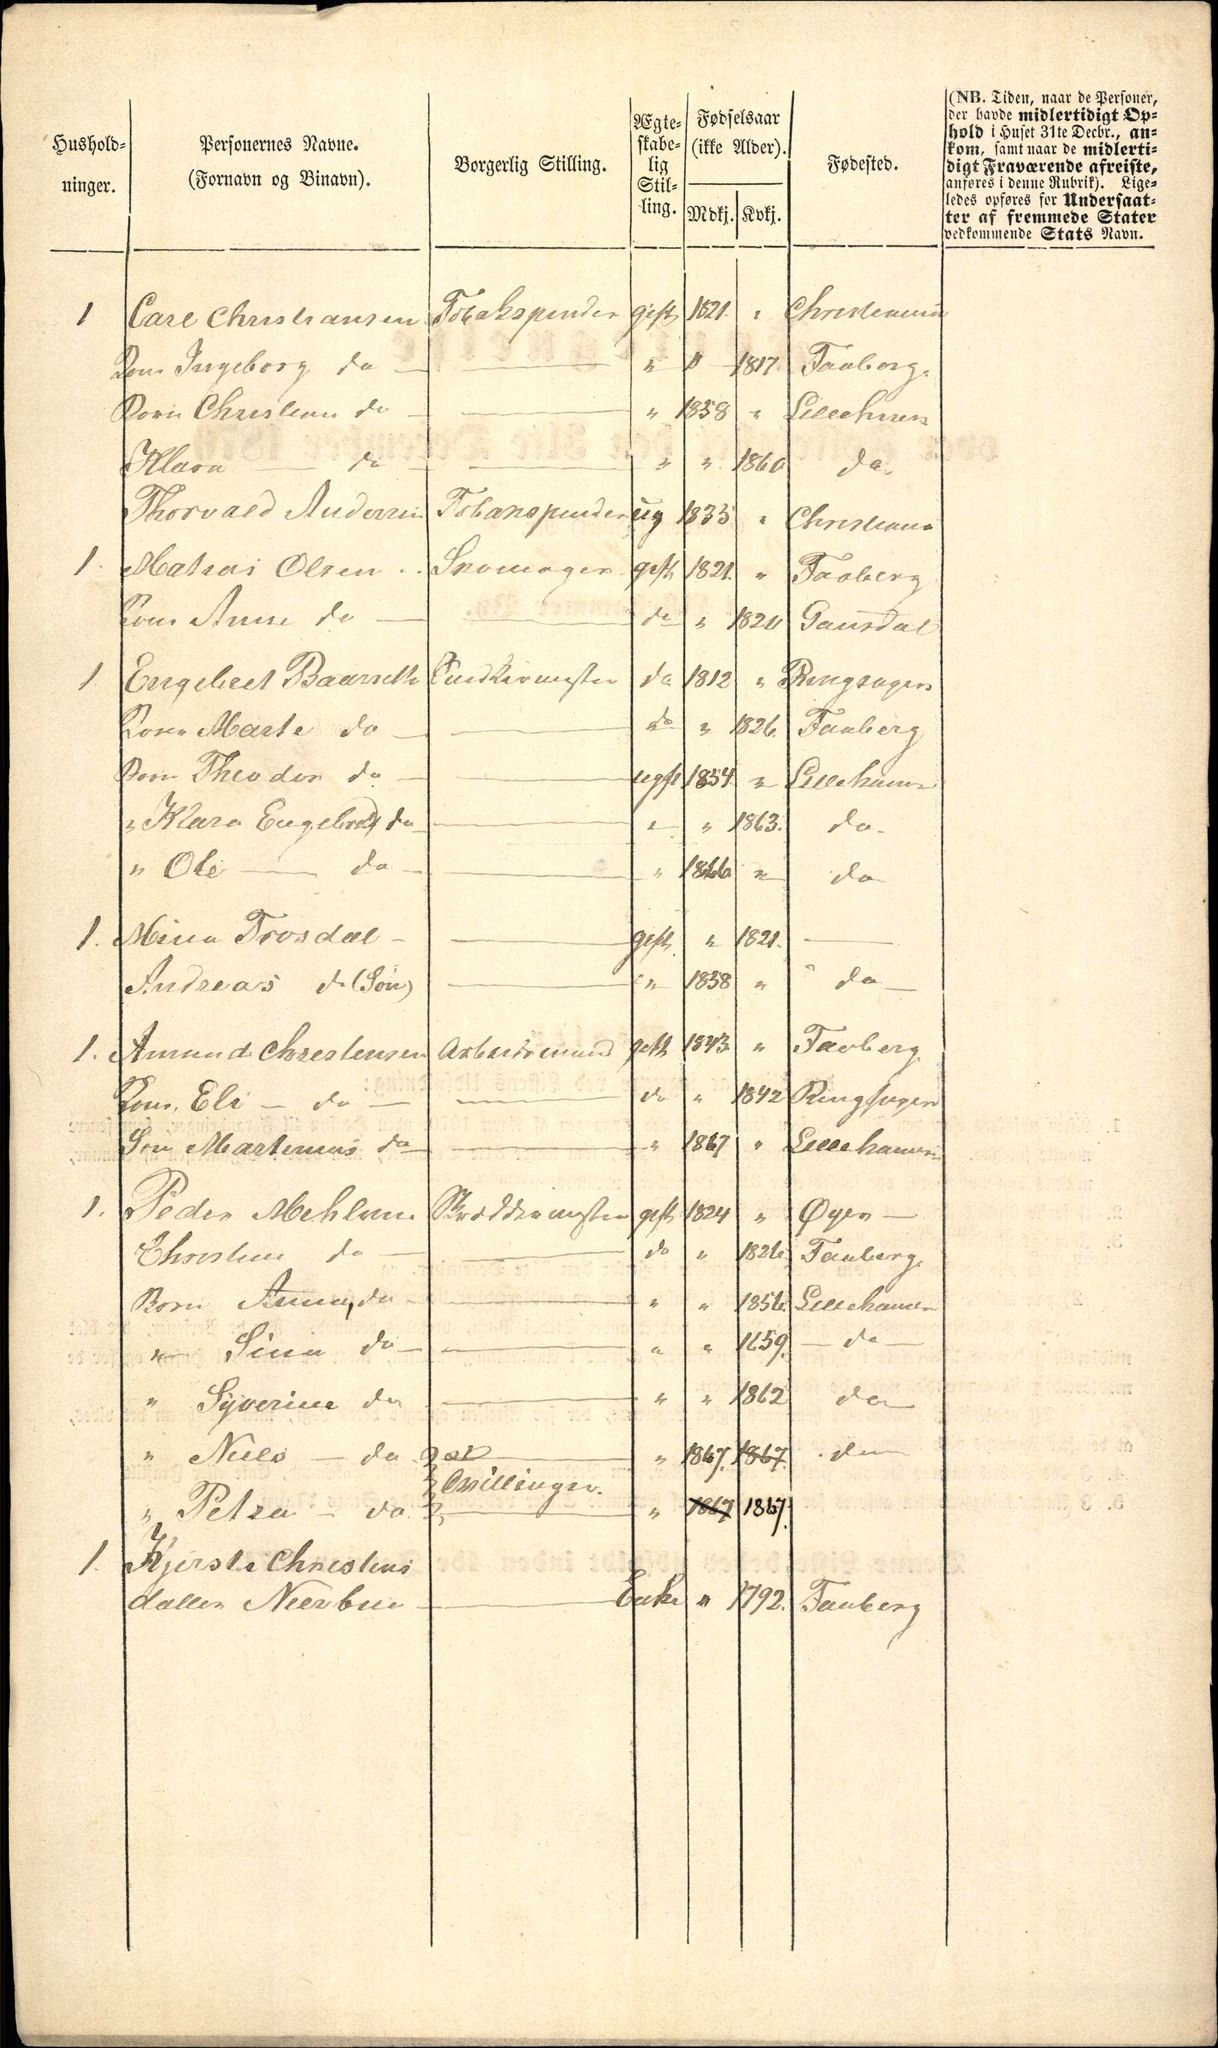 Hushold-
ninger.
Personernes Navne.
(Fornavn og Binavn).
Borgerlig Stilling.
Ægte-
skabe-
lig
Stil-
ling.
Fødselsaar
(ikke Alder).
Mdkj. Kvkj.
Fødested.
(NB. Tiden, naar de Personer,
der havde midlertidigt Op-
hold i Huset 31te Decbr., an-
kom, samt naar de midlerti-
digt Fraværende afreiste,
anføres i denne Rubrik). Lige-
ledes opføres for Undersaat-
ter af fremmede Stater
vedkommende Stats Navn.
1 Carl Christiansen Tobakspinder gift 1821 " Christiania
Kone Ingeborg do — " " 1817 Faaberg
Born Christian do — " 1858 " Lillehmer
Klara — do — " " 1860 do
Thorvald Andersen Tobakspinder ug 1835 " Christiania
1. Mathias Olsen Skomager gift 1821 " Faaberg
Kone Anne do — do " 1820 Gausdal
1 Engebret Baarseth do 1812 " Ringsager
Kone Marte do — do " 1826 Faaberg
Born Theodor do — ugft 1854 " Lillehamer
" Klara Engebret do — " " 1863. do
" Ole — do — " 1866 " do
1. Mina Trosdal — gift " 1821. —
Andreas do (Søn) — " 1858 " do —
1. Amund Christensen Arbeidsmand gift 1843 " Faaberg
Kone Eli — do — do " 1842 Ringsager
Søn Martinus do — " 1867 " Lillehamer
1. Peder Mehlum Skreddermester gift 1824 " Øyer —
Christine do — do " 1826 Faaberg
Born Anna, do — " " 1856. Lillehamer
" Sina do — " " 1859. — do —
" Syverine do — " " 1862 do
" Niels — do — " 1867. 1867. do
Tvillinger.
" Petra — do — " 1867 1867.
1. Kjersti Christens
datter — Enke " 1792. Faaberg